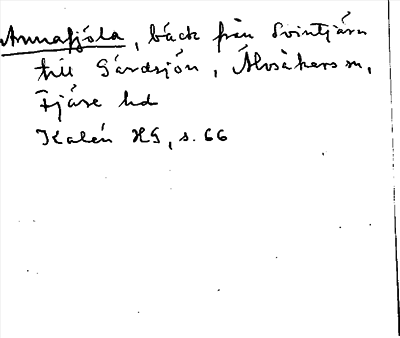 Annafjóla, bäck från Svintjärn
till Gårdsjön, Älvsåkers sn,
Fjäre hd
Kalén HG, s. 66